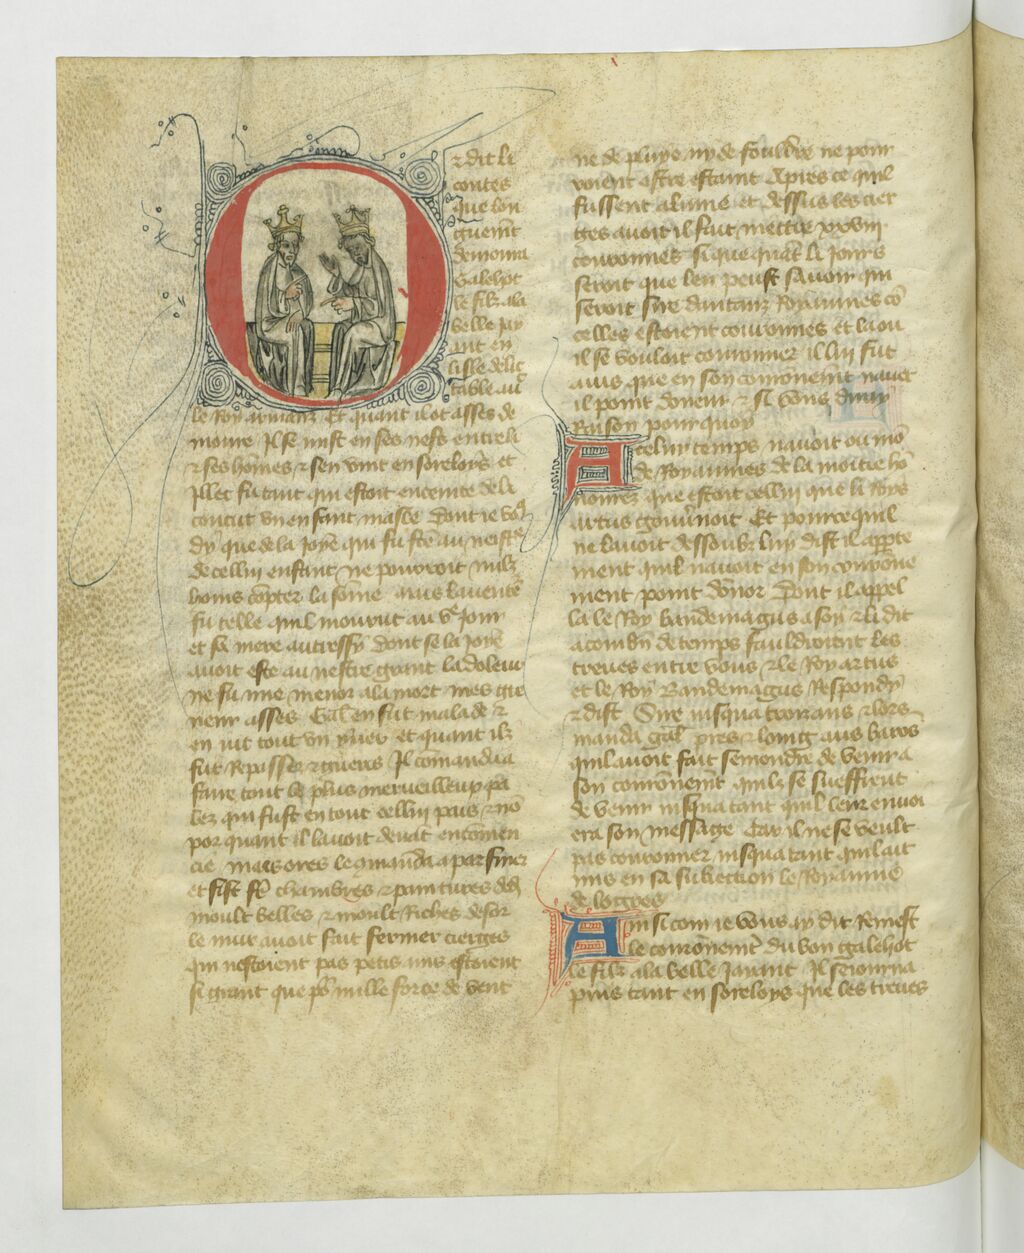 Or dit li
contes
que lon
guemt
demoura
Galehot
le filz ala
belle jay
ant en
lisle delic
table au
le Roy
et quant il ot asses de
moure Il se mist en ses nefs entre li
et ses homes et sen vint en soreloys et
Illec fu tant qui estoit enceinte de li
concut vn enfant masle Dont ie vo9
dy que de la Joye qui fu fte au neistre
de cellui enfant ne pouroit nulz
homs copter la some mais lauente
fu telle quil mourut au ve Jour
et sa mere autressy dont se la Joye
auoit este au nestre grant la doleur
ne fu mie menor ala mort mes gre
neur asses Gal en fut malade et
en iut tout vn yuer et quant ilz
fut Repasses et gueris Il comanda
faire tout le plus merueilleux pa
lez qui fust en tout cellui pais et no
por quant il lauoit deuat encomen
cie mais ores le gmanda a parfiner
et fist fe chambres et paintures des
moult belles et moult Riches desor
le mur auoit fait fermer cierges
qui nestoient pas petis ains estoient
si grant que por mille force de vent
ne de pluye ny de fouldre ne pour
roient estre estaint Apres ce quil
fussent alume et dessus les cier
ges auoit il fait mectre xxviii
couronnes si que quat li jours
seroit que len peust sauoir qui
seroit sire dautant Royaumes co
celles estoient couronnes et la ou
il se vouloit couronner il lui fut
auis que en son couronemt
il point doneur et si vous diray
Raison pour quoy
A celui temps nauoit ou mo
de Royaumes de la moitie ho
nourez que estoit cellui que li Roys
artus gouuernoit Et pource quil
ne lauoit dessoubz luy dist il apperte
ment quil nauoit en son courone
ment point donor Dont il appel
la le Roy bandemagus a soy et li dit
a combn de temps fauldroient les
treues entre vous et le Roy artus
et le Roy Bandemagus Respondy
et dist Sire iusqua trois ans et lors
manda gal pres et loing aus baros
quil auoit fait semondre de venir a
son couronemt quilz se sueffrent
de venir iusqua tant quil leur enuoi
era son message Car il ne se veult
pas couronner iusqua tant quil ait
mis en sa subiection le Royaume
de logres
Ainsi com ie vous ay dit Remest
le couronemt du bon galehot
le filz a la belle Jayant Il seiourna
puis tant en soreloys que les treues